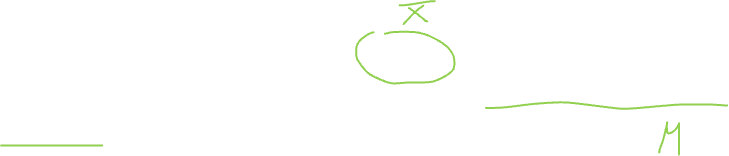 x̄
μ